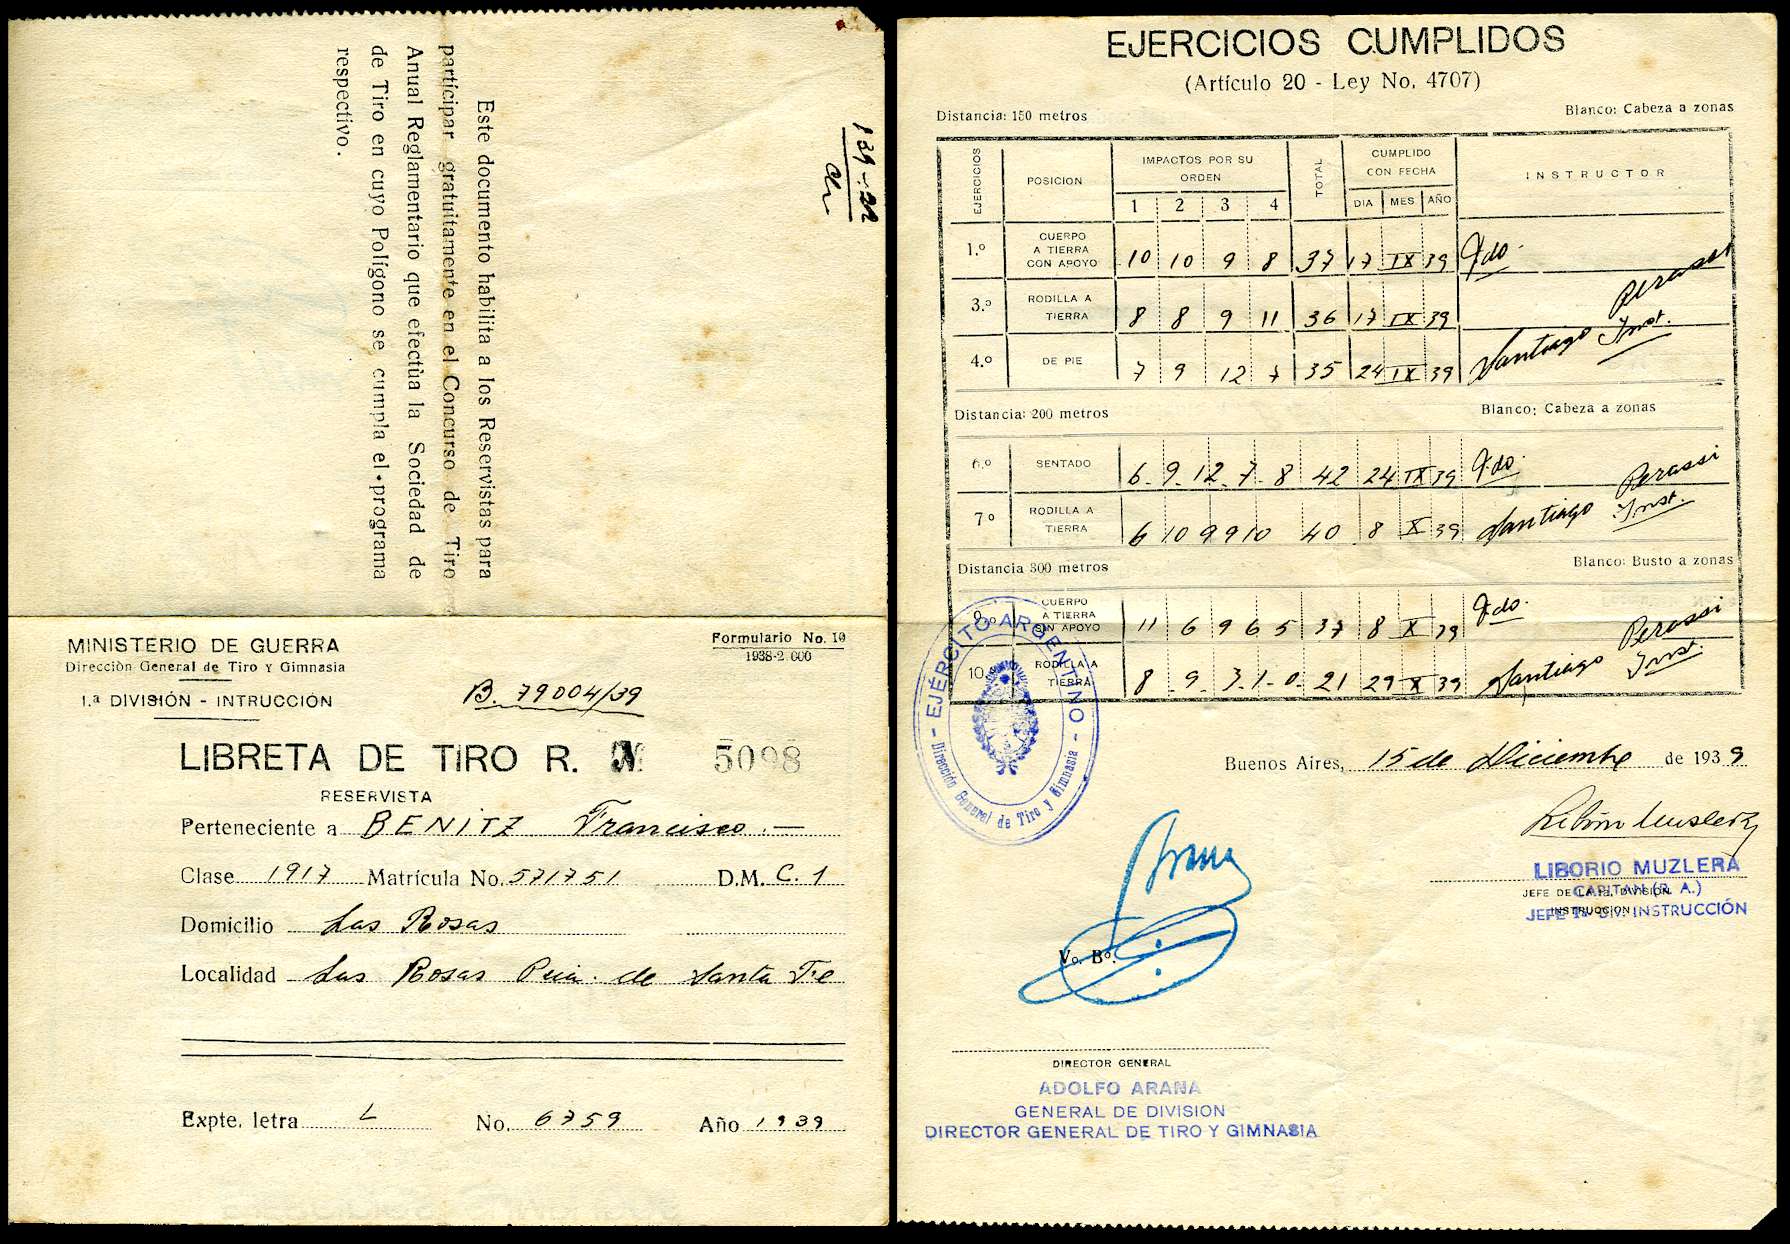 Este documento habilita a los Reservistas para
participar gratuitamente en el Concurso de Tiro
Anual Reglamentario que efectùa la Sociedad de
de Tiro en cuyo Polígono se cumpla el programa
respectivo.
MINISTERIO DE GUERRA
Dirección General de Tiro y Gimnasia
1.ª DIVISIÓN - INTRUCCIÓN
Formulario No. 10
1938-2 000
B. 79004/39
LIBRETA DE TIRO R. N 5098
RESERVISTA
Perteneciente a BENITZ Francisco.—
Clase 1917 Matrícula No. 571751 D.M. C. 1
Domicilio Las Rosas
Localidad Las Rosas Pcia. de Santa Fe
Expte. letra L No. 6759 Año 1939
EJERCICIOS CUMPLIDOS
(Artículo 20 - Ley No. 4707)
Distancia: 150 metros Blanco: Cabeza a zonas
EJERCICIOS POSICION IMPACTOS POR SU ORDEN TOTAL CUMPLIDO CON FECHA INSTRUCTOR
1 2 3 4 DIA MES AÑO
1.º CUERPO A TIERRA CON APOYO 10 10 9 8 37 17 IX 39 Fdo.
3.º RODILLA A TIERRA 8 8 9 11 36 17 IX 39
4.º DE PIE 7 9 12 7 35 24 IX 39 Santiago Perassi Inst.
Distancia: 200 metros Blanco: Cabeza a zonas
6.º SENTADO 6 - 9 - 12 - 7 - 8 42 24 IX 39 Fdo.
7º RODILLA A TIERRA 6 10 9 9 10 40 8 X 39 Santiago Perassi Inst.
Distancia 300 metros Blanco: Busto a zonas
9.º CUERPO A TIERRA SIN APOYO 11 6 9 6 5 37 8 X 39 Fdo.
10 RODILLA A TIERRA 8 - 9 - 3 - 1 - 0 - 21 29 X 39 Santiago Perassi Inst.
- EJÉRCITO ARGENTINO -
Dirección General de Tiro y Gimnasia
Buenos Aires, 15 de Diciembre de 1939
Arana
LIBORIO MUZLERA
CAPITAN (R. A.)
JEFE 1ª DIV. INSTRUCCIÓN
JEFE DE LA 1ª DIVISION
INSTRUCCION
Vo. Bo.
DIRECTOR GENERAL
ADOLFO ARANA
GENERAL DE DIVISION
DIRECTOR GENERAL DE TIRO Y GIMNASIA